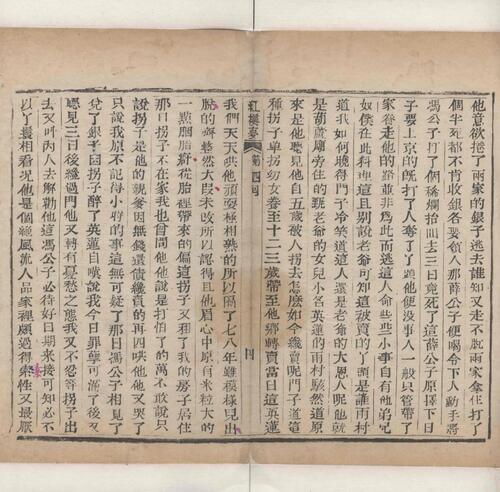 他意欲捲了兩家的銀子逃去誰知又走不脫兩家拿住打了
個半死都不肯收銀各要領人那薛公子便喝令下人動手將
馮公子打了個稀爛抬回去三日竟死了這薛公子原擇下日
子要上京的既打了人奪了丫頭他便沒事人一般只管帶了
家眷走他的路並非為此而逃這人命些些小事自有他弟兄
奴僕在此料理這且別說老爺可知這被賣的丫頭是誰雨村
道我如何曉得門子冷笑道這人還是老爺的大恩人呢他就
是葫蘆廟旁住的甄老爺的女兒小名英蓮的雨村駭然道原
來是他聽見他自五歲被人拐去怎麼如今纔賣呢門子道這
種拐子單拐幼女養至十二三歲帶至他鄉轉賣當日這英蓮
紅樓夢 第四回 四
我們天天哄他頑耍極相熟的所以隔了七八年雖模樣兒出
脫的齊整然大段未改所以認得且他眉心中原有米粒大的
一點胭脂㾵從胎裡帶來的偏這拐子又租了我的房子居住
那日拐子不在家我也曾問他他說是打怕了的萬不敢說只
說拐子是他的親爹因無錢還債纔賣的再四哄他他又哭了
只說我原不記得小時的事這無可疑了那日馮公子相見了
兌了銀子因拐子醉了英蓮自嘆說我今日罪孽可滿了後又
聽見三日後纔過門他又轉有憂愁之態我又不忍等拐子出
去又叫內人去解勸他這馮公子必待好日期來接可知必不
以丫鬟相看況他是個絕風流人品家裡頗過得素性又最厭